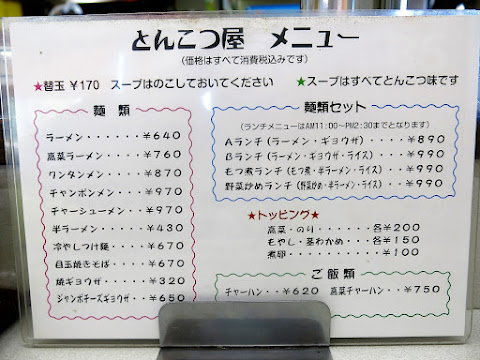 とんこつ屋 メニュー
(価格はすべて消費税込みです)
★替玉 ¥170 スープはのこしておいてください ★スープはすべてとんこつ味です
麺類
ラーメン・・・・・・¥640
高菜ラーメン・・・・¥760
ワンタンメン・・・・¥870
チャンポンメン・・・¥970
チャーシューメン・・¥970
半ラーメン・・・・・¥430
冷やしつけ麺・・・・¥670
目玉焼きそば・・・・¥670
焼ギョウザ・・・・・¥320
ジャンボチーズギョウザ・・¥650
麺類セット
(ランチメニューはAM11:00〜PM2:30までとなります)
Aランチ(ラーメン・ギョウザ)・・・・¥890
Bランチ(ラーメン・ギョウザ・ライス)・・¥990
もつ煮ランチ(もつ煮・半ラーメン・ライス)・・¥990
野菜炒めランチ(野菜炒め・半ラーメン・ライス)・・¥990
★トッピング★
高菜・のり・・・・・各¥200
もやし・茎わかめ・・・各¥150
煮卵・・・・・・・・¥100
ご飯類
チャーハン・・¥620 高菜チャーハン・・¥750